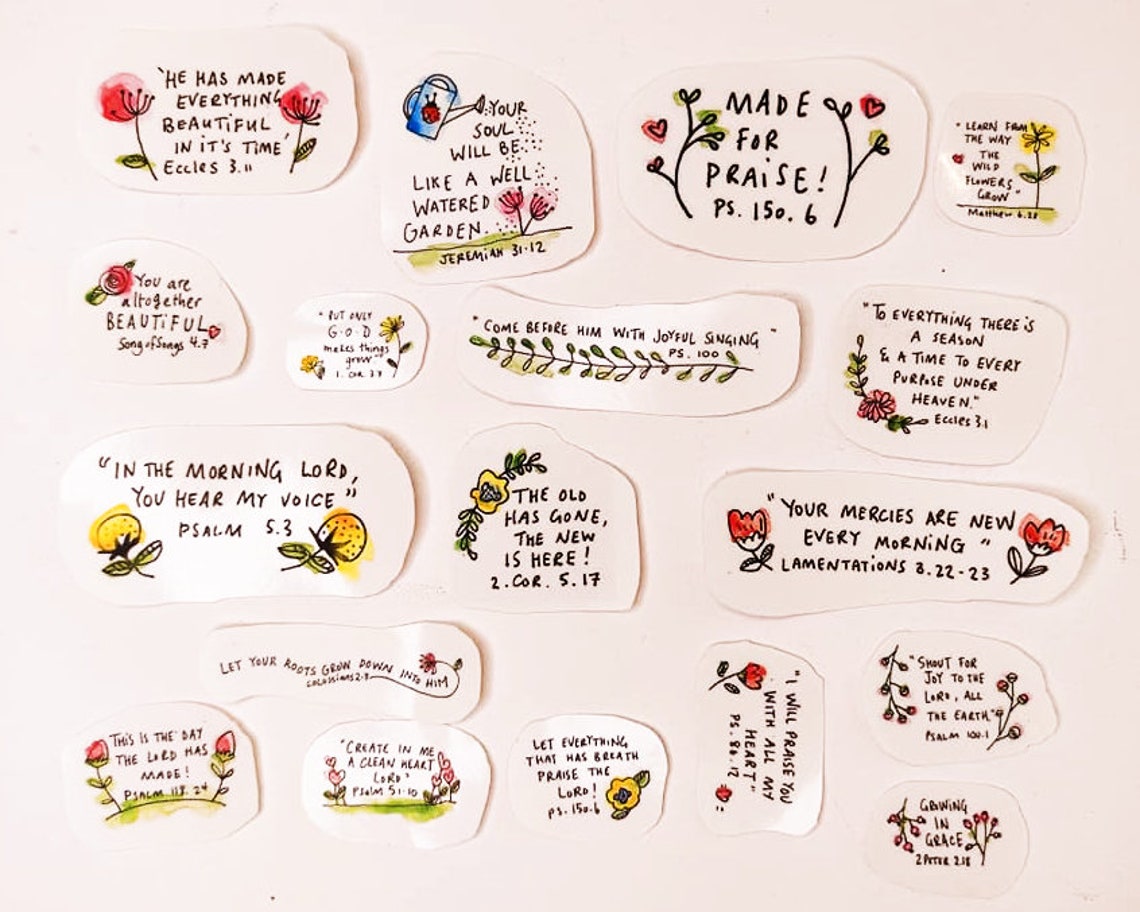 'HE HAS MADE
EVERYTHING
BEAUTIFUL
IN IT'S TIME'
Eccles 3.11
YOUR
SOUL
WILL BE
LIKE A WELL
WATERED
GARDEN.
JEREMIAH 31.12
MADE
FOR
PRAISE!
PS. 150.6
"LEARN FROM
THE WAY
THE
WILD
FLOWERS
GROW"
Matthew 6.28
You are
altogether
BEAUTIFUL
Song of Songs 4.7
"BUT ONLY
G.O.D
makes things
grow"
1. COR 3.7
"COME BEFORE HIM WITH JOYFUL SINGING"
PS. 100
"TO EVERYTHING THERE IS
A SEASON
& A TIME TO EVERY
PURPOSE UNDER
HEAVEN."
Eccles 3.1
"IN THE MORNING LORD,
YOU HEAR MY VOICE"
PSALM 5.3
THE OLD
HAS GONE,
THE NEW
IS HERE!
2. COR. 5.17
"YOUR MERCIES ARE NEW
EVERY MORNING"
LAMENTATIONS 3.22-23
LET YOUR ROOTS GROW DOWN INTO HIM
COLOSSIANS 2.7
"I WILL PRAISE YOU
WITH ALL MY
HEART"
PS. 86.12
"SHOUT FOR
JOY TO THE
LORD, ALL
THE EARTH."
PSALM 100.1
THIS IS THE DAY
THE LORD HAS
MADE!
PSALM 118.24
"CREATE IN ME
A CLEAN HEART
LORD"
PSALM 51.10
LET EVERYTHING
THAT HAS BREATH
PRAISE THE
LORD!
PS. 150.6
GROWING
IN
GRACE
2 PETER